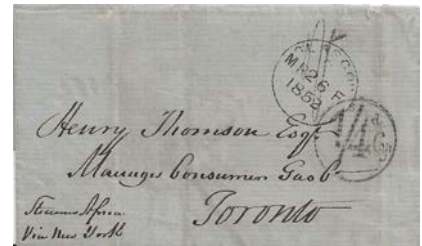 MR 26
1852
Henry Thomson Esqr
Manager Consumers Gas Co
Toronto
Steamer Africa
Via New York